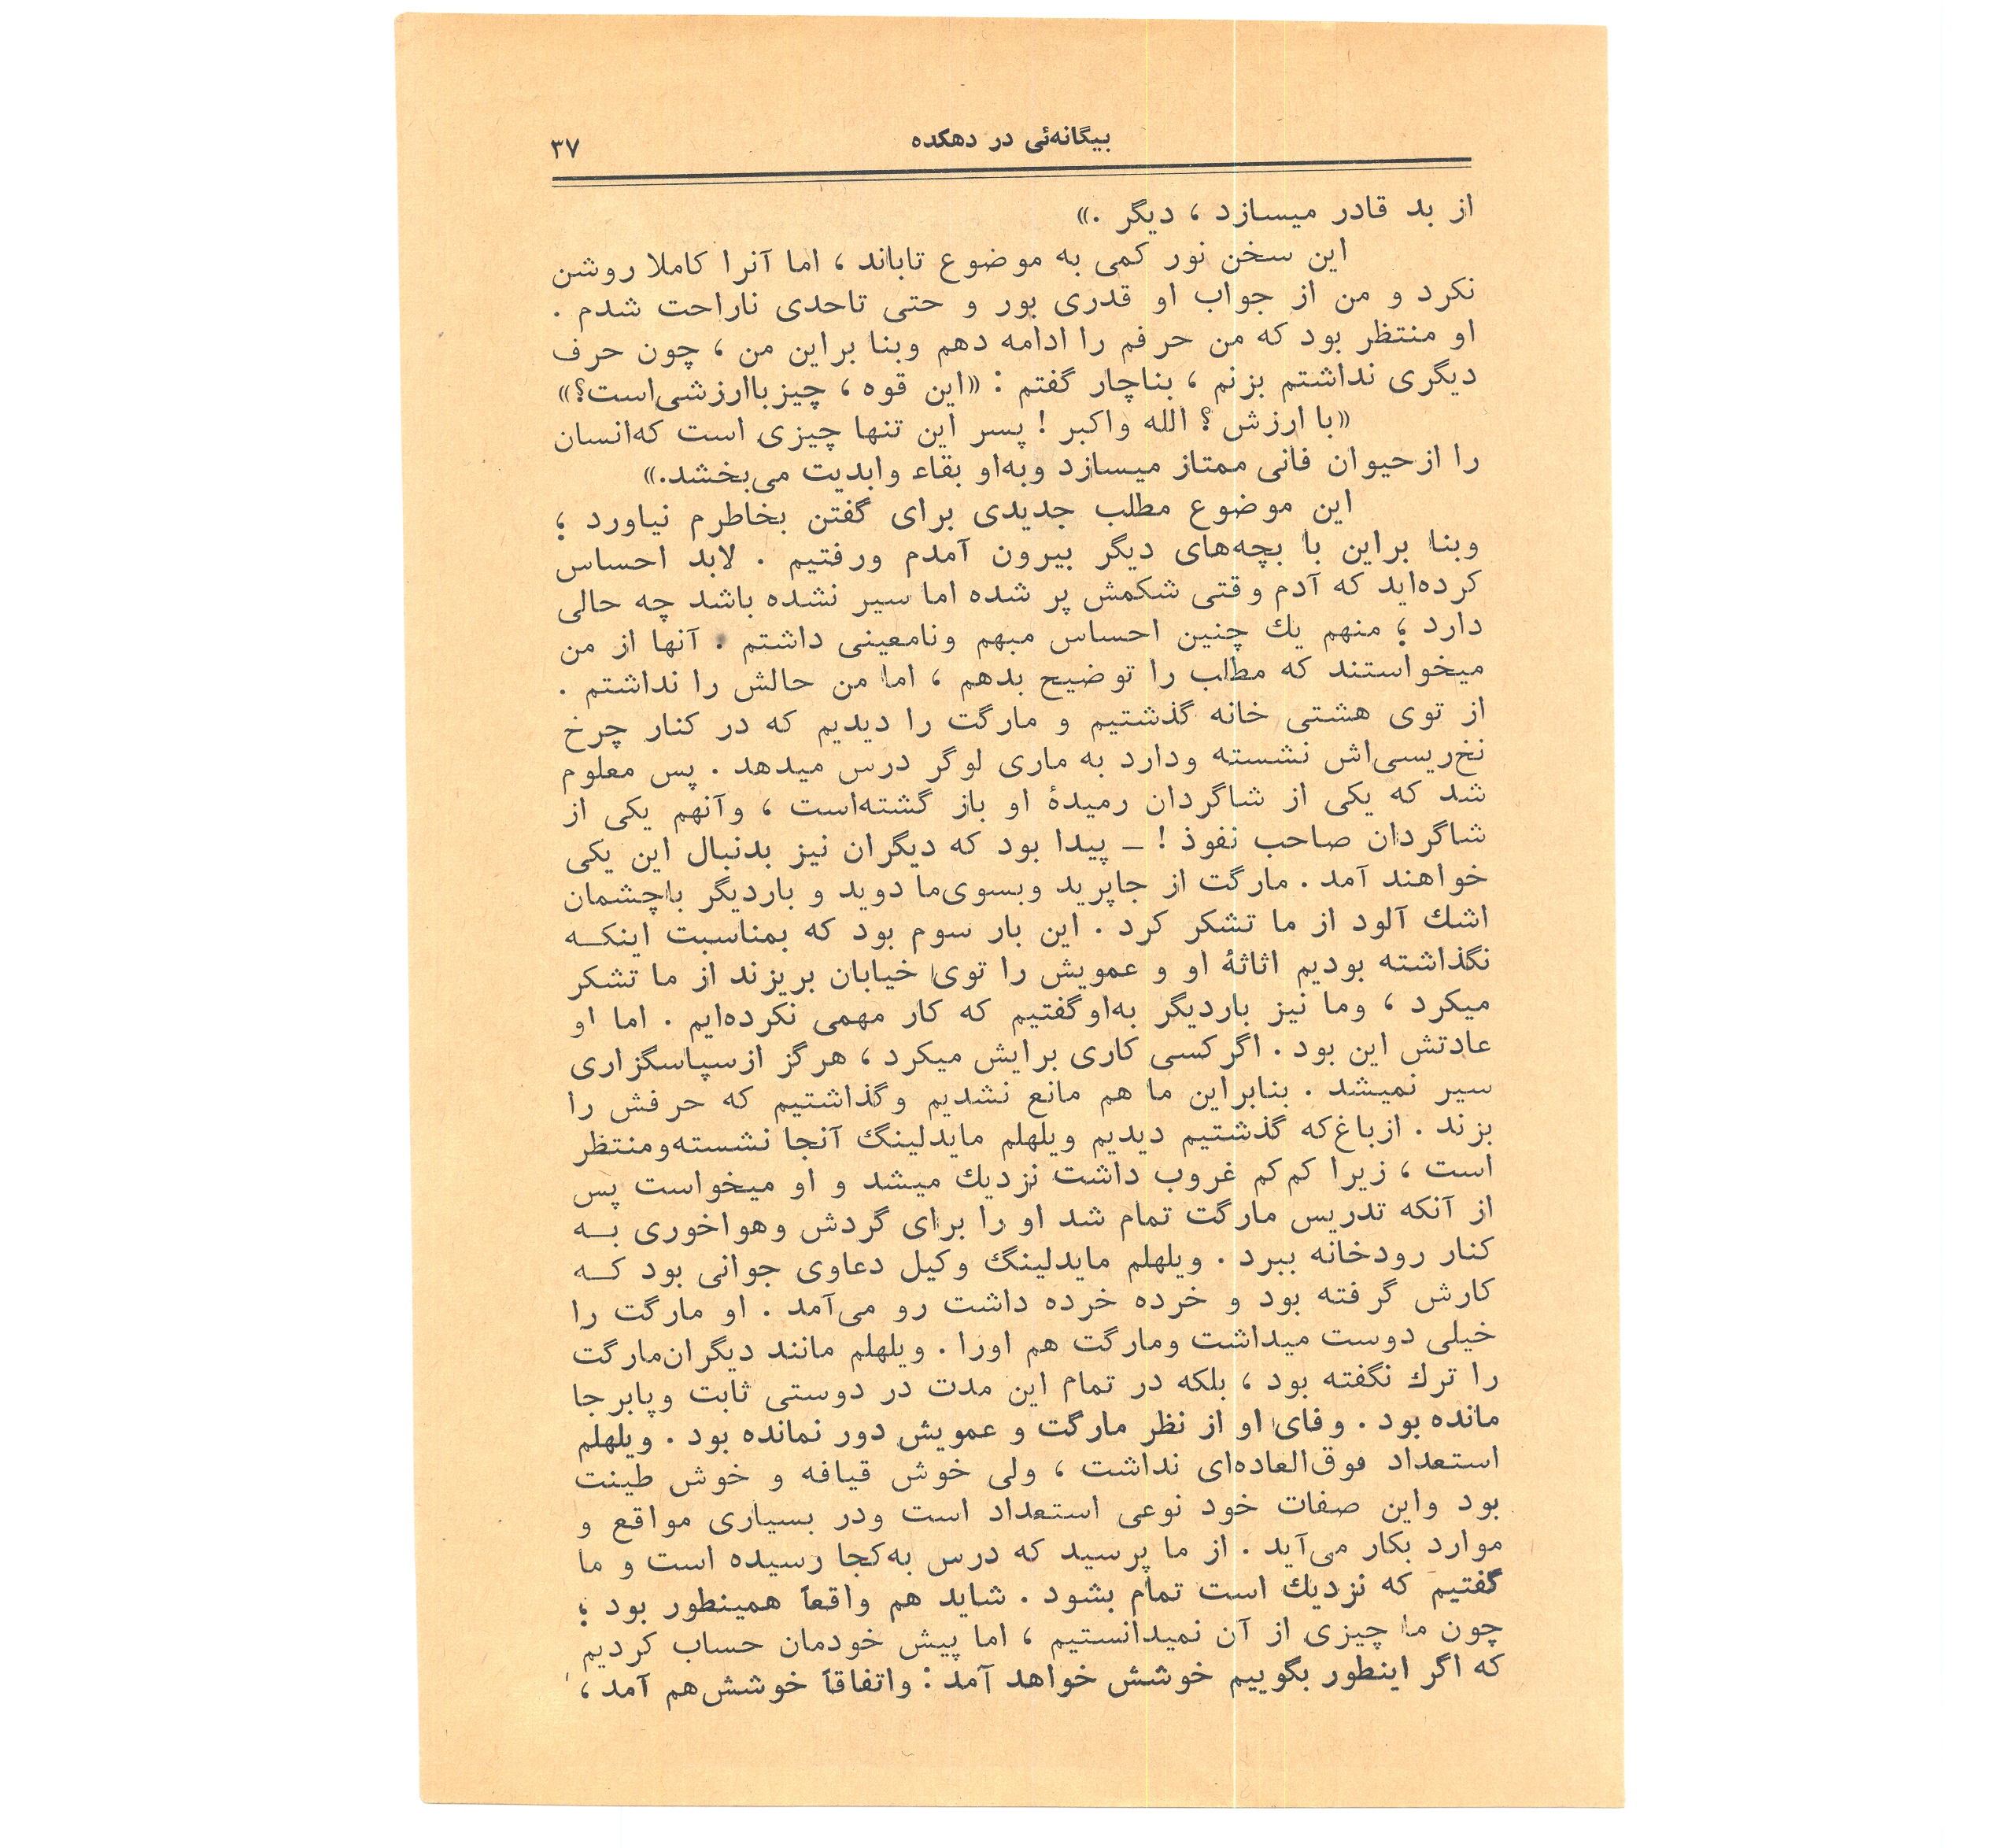 بیگانه‌ئی در دهکده ۳۷
از بد قادر میسازد ، دیگر .»
این سخن نور کمی به موضوع تاباند ، اما آنرا کاملا روشن
نکرد و من از جواب او قدری بور و حتی تاحدی ناراحت شدم .
او منتظر بود که من حرفم را ادامه دهم وبنا براین من ، چون حرف
دیگری نداشتم بزنم ، بناچار گفتم : «این قوه ، چیز باارزشی‌است؟»
«با ارزش ؟ الله واکبر ! پسر این تنها چیزی است که‌انسان
را ازحیوان فانی ممتاز میسازد وبه‌او بقاء وابدیت می‌بخشد.»
این موضوع مطلب جدیدی برای گفتن بخاطرم نیاورد ؛
وبنا براین با بچه‌های دیگر بیرون آمدم ورفتیم . لابد احساس
کرده‌اید که آدم وقتی شکمش پر شده اما سیر نشده باشد چه حالی
دارد ؛ منهم یك چنین احساس مبهم ونامعینی داشتم . آنها از من
میخواستند که مطلب را توضیح بدهم ، اما من حالش را نداشتم .
از توی هشتی خانه گذشتیم و مارگت را دیدیم که در کنار چرخ
نخ‌ریسی‌اش نشسته ودارد به ماری لوگر درس میدهد . پس معلوم
شد که یکی از شاگردان رمیدهٔ او باز گشته‌است ، وآنهم یکی از
شاگردان صاحب نفوذ ! ــ پیدا بود که دیگران نیز بدنبال این یکی
خواهند آمد . مارگت از جاپرید وبسوی‌ما دوید و باردیگر باچشمان
اشك آلود از ما تشکر کرد . این بار سوم بود که بمناسبت اینکــه
نگذاشته بودیم اثاثهٔ او و عمویش را توی خیابان بریزند از ما تشکر
میکرد ، وما نیز باردیگر به‌اوگفتیم که کار مهمی نکرده‌ایم . اما او
عادتش این بود . اگرکسی کاری برایش میکرد ، هرگز ازسپاسگزاری
سیر نمیشد . بنابراین ما هم مانع نشدیم وگذاشتیم که حرفش را
بزند . ازباغ‌که گذشتیم دیدیم ویلهلم مایدلینگ آنجا نشسته‌ومنتظر
است ، زیرا کم‌کم غروب داشت نزدیك میشد و او میخواست پس
از آنکه تدریس مارگت تمام شد او را برای گردش وهواخوری بــه
کنار رودخانه ببرد . ویلهلم مایدلینگ وکیل دعاوی جوانی بود کــه
کارش گرفته بود و خرده خرده داشت رو می‌آمد . او مارگت را
خیلی دوست میداشت ومارگت هم اورا . ویلهلم مانند دیگران‌مارگت
را ترك نگفته بود ، بلکه در تمام این مدت در دوستی ثابت وپابرجا
مانده بود . وفای او از نظر مارگت و عمویش دور نمانده بود . ویلهلم
استعداد فوق‌العاده‌ای نداشت ، ولی خوش قیافه و خوش طینت
بود واین صفات خود نوعی استعداد است ودر بسیاری مواقع و
موارد بکار می‌آید . از ما پرسید که درس به‌کجا رسیده است و ما
گفتیم که نزدیك است تمام بشود . شاید هم واقعاً همینطور بود ؛
چون ما چیزی از آن نمیدانستیم ، اما پیش خودمان حساب کردیم
که اگر اینطور بگوییم خوشش خواهد آمد : واتفاقاً خوشش‌هم آمد ،